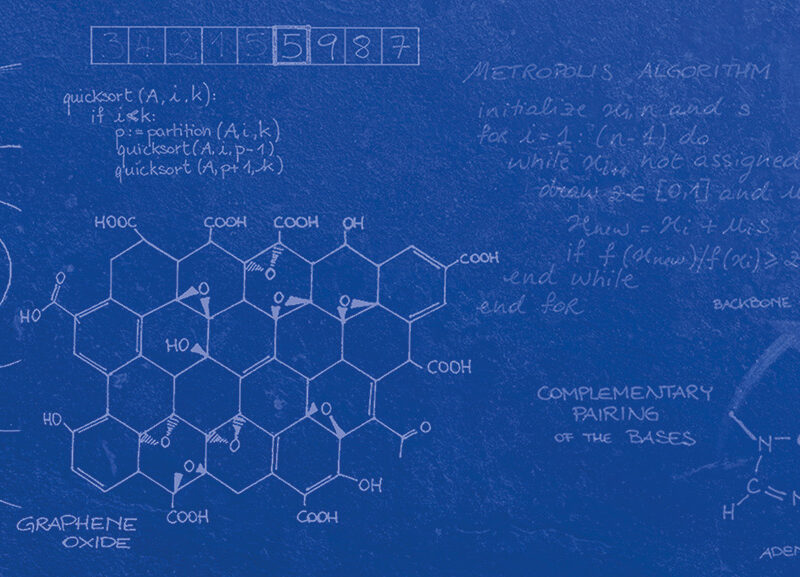 3 4 2 1 5 5 9 8 7
quicksort (A, i, k):
if i < k:
p := partition (A, i, k)
quicksort (A, i, p-1)
quicksort (A, p+1, k)
METROPOLIS ALGORITHM
initialize x1, n and s
for i = 1 : (n-1) do
while xi+1 not assigned
draw z ∈ [0,1] and u
xnew = xi + uis
if f (xnew)/f(xi) ≥ z
end while
end for
HOOC
COOH
COOH
OH
COOH
O
O
O
O
O
HO
HO
COOH
HO
O
O
O
O
O
OH
COOH
COOH
GRAPHENE
OXIDE
BACKBONE
COMPLEMENTARY
PAIRING
OF THE BASES
N
C
N
H
ADEN